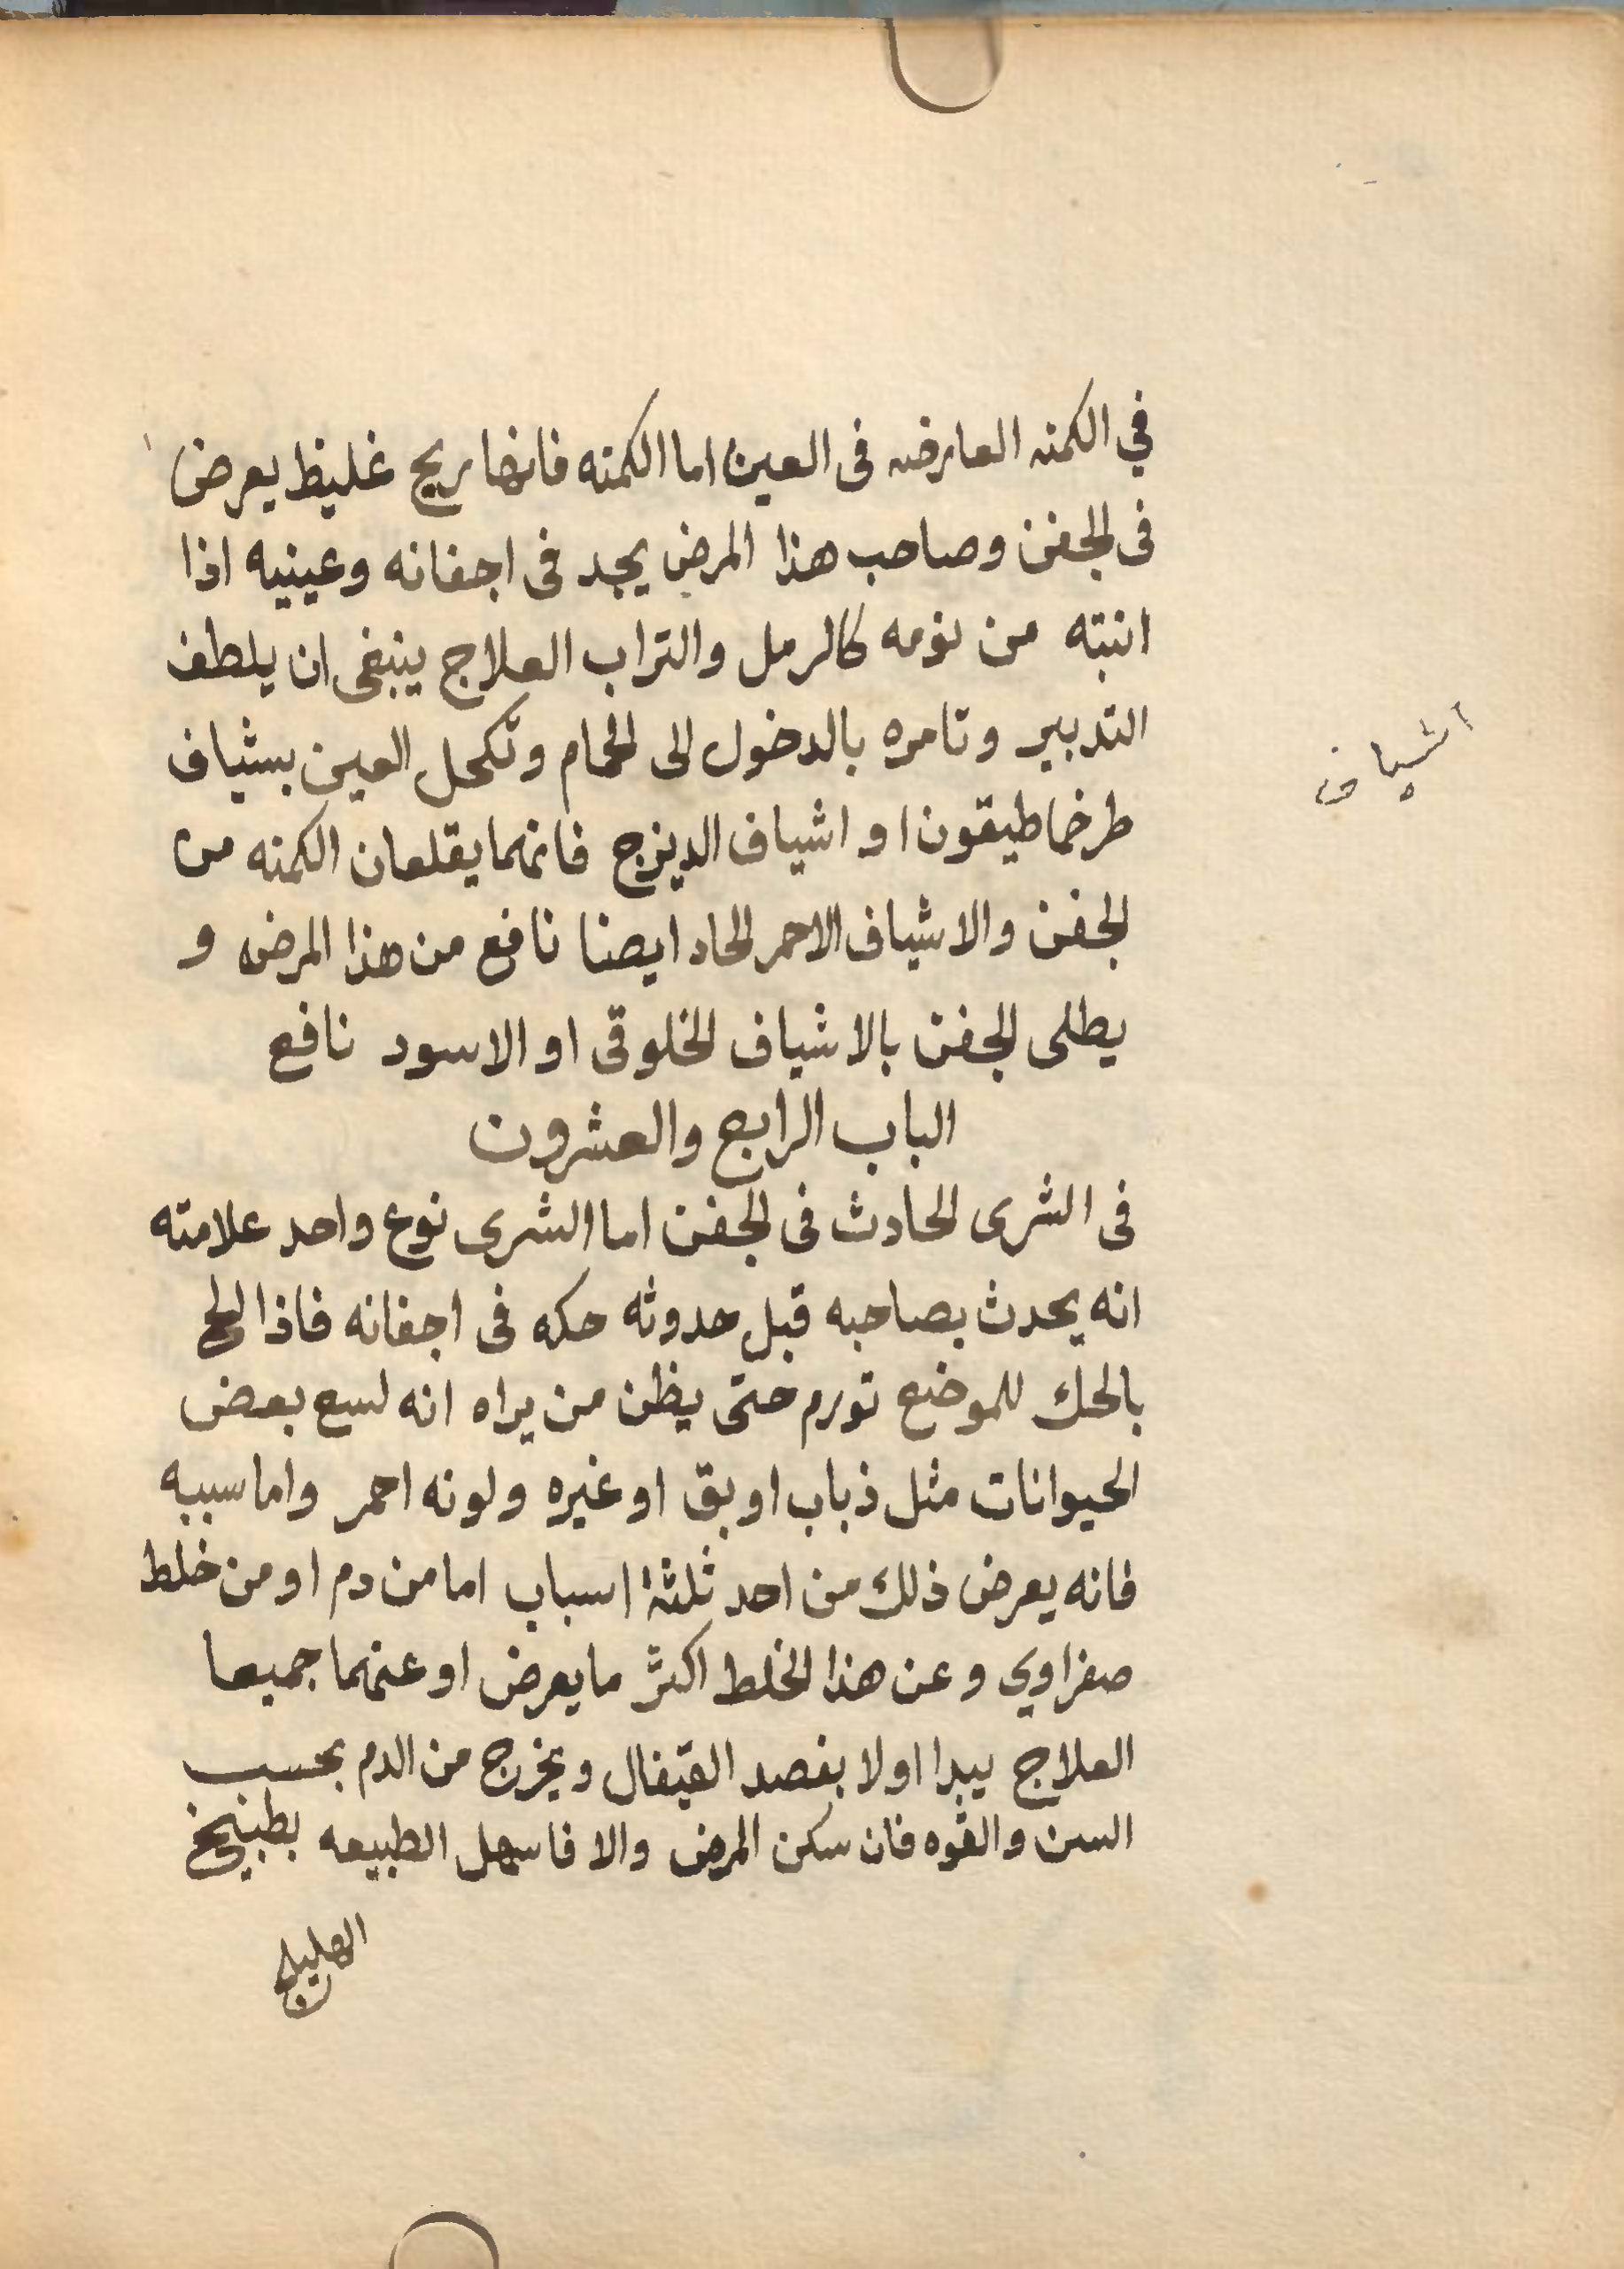 في الكمنه العارضه فى العين اما الكمنه فانها ريح غليظ يعرض
فى الجفن وصاحب هذا المرض يجد فى اجفانه وعينيه اذا
انبته من نومه كالرمل والتراب العلاج ينبغى ان يلطف
التدبير وتامره بالدخول الى الحمام وتكحل العين بشياف
اشياف
طرخماطيقون او اشياف الديزج فانهما يقلعان الكمنه من
الجفن والاشياف الاحمر الحاد ايضا نافع من هذا المرض و
يطلى الجفن بالاشياف الخلوقى او الاسود نافع
الباب الرابع والعشرون
فى الشرى الحادث فى الجفن اما الشرى نوع واحد علامته
انه يحدث بصاحبه قبل حدوثه حكه فى اجفانه فاذا الح
بالحك للموضع تورم حتى يظن من يراه انه لسع بعض
الحيوانات مثل ذباب او بق او غيره ولونه احمر واما سببه
فانه يعرض ذلك من احد ثلثة اسباب اما من دم او من خلط
صفراوي وعن هذا الخلط اكثر ما يعرض او عنهما جميعا
العلاج يبدا اولا بفصد القيفال ويخرج من الدم بحسب
السن والقوه فان سكن المرض والا فاسهل الطبيعه بطبيخ
الهليلج